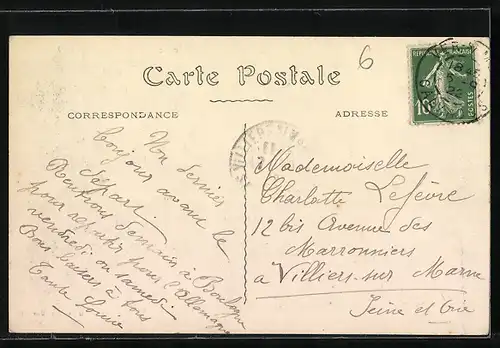 6
Carte Postale
CORRESPONDANCE
ADRESSE
REPUBLIQUE FRANÇAISE
10
POSTES
VILLIERS
Mon dernier
bonjour avant le
départ.
Rentrons demain à Boulogne
pour repartir pour l'Allemagne
vendredi ou samedi
Bons baisers à tous
Tante Louise
Mademoiselle
Charlotte Lefèvre
12 bis Avenue des
Marronniers
à Villiers-sur Marne
Seine et Oise